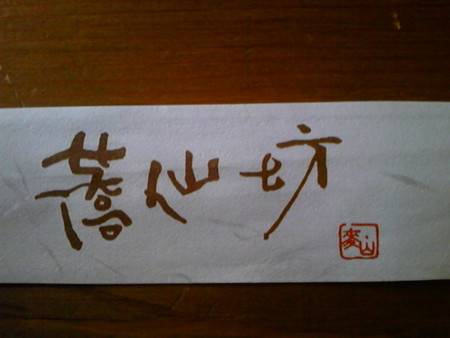 蕎仙坊